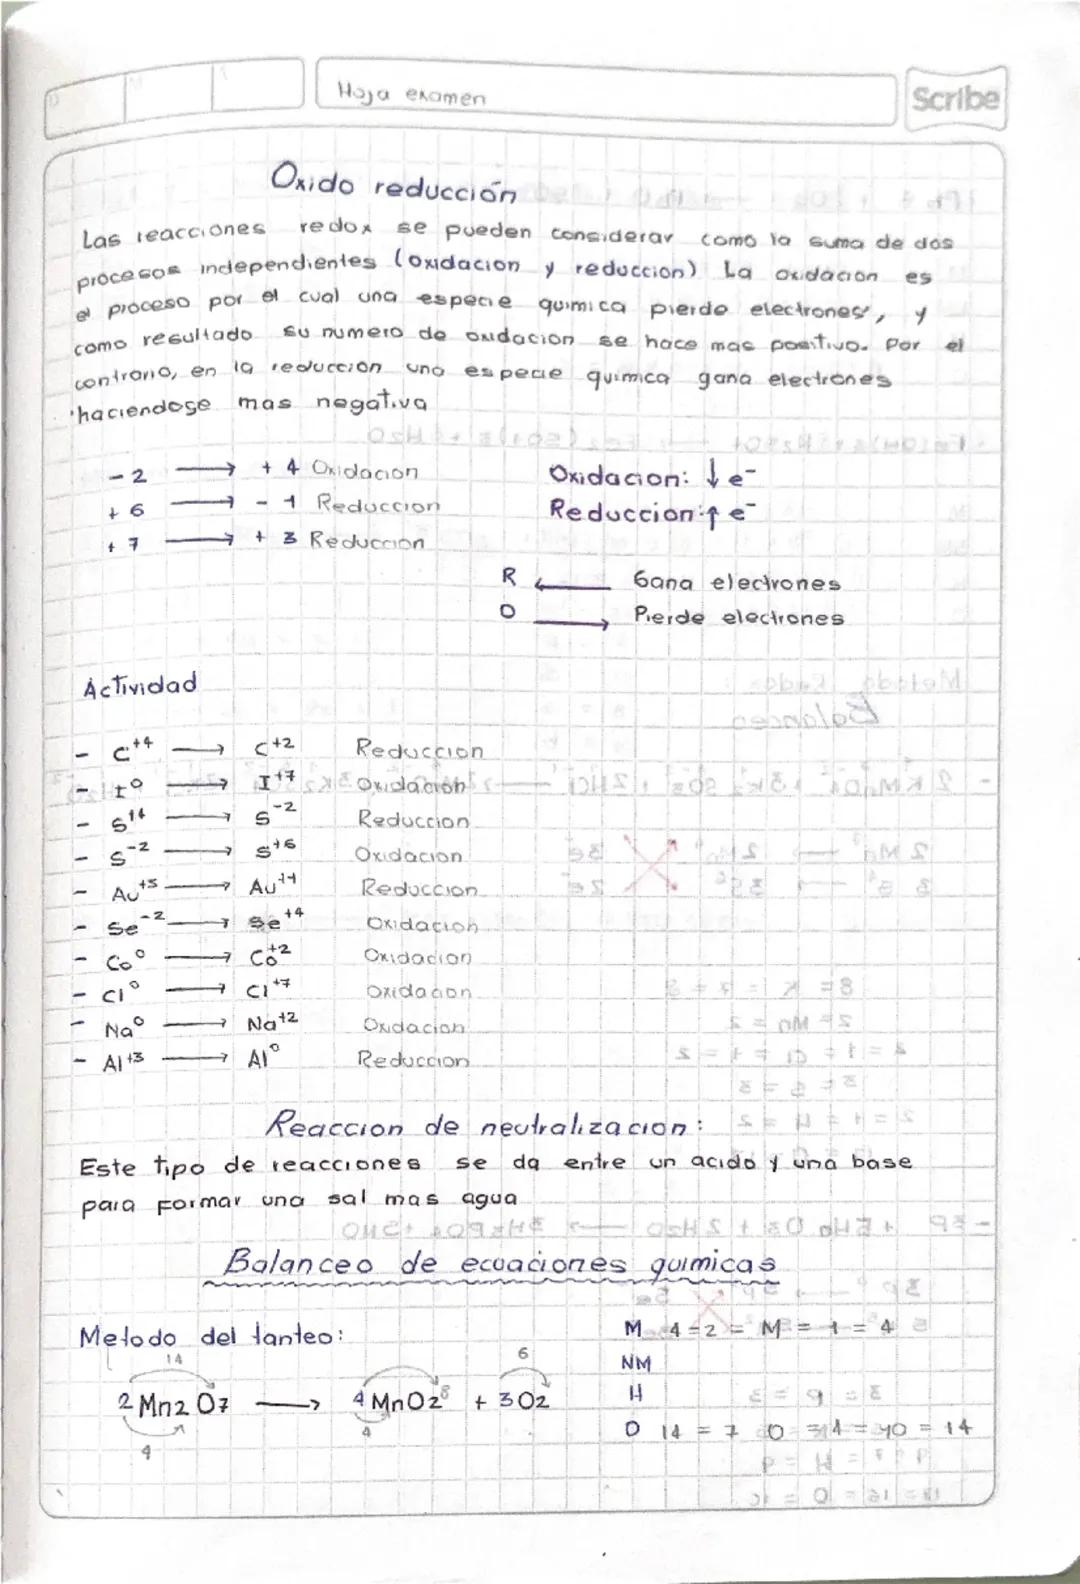 Hoja examen
Scribe
Oxido reducción
Las reacciones redox se pueden considerar como la suma de dos
procesos independientes (oxidacion y reduccion) La oxidacion es
el proceso por el cual una especie quimica pierde electrones, y
como resultado su numero de oxidacion se hace mas positivo. Por el
contrario, en la reduccion una especie quimica gana electrones
haciendose mas negativa
-2 → +4 Oxidacion
+6 → -1 Reduccion
+7 → +3 Reduccion
Oxidacion: ↓ e⁻
Reduccion: ↑ e⁻
R ← Gana electrones
O → Pierde electrones
Actividad
- C⁺⁴ → C⁺² Reduccion
- I⁰ → I⁺⁷ Oxidacion
- S⁺⁴ → S⁻² Reduccion
- S⁻² → S⁺⁶ Oxidacion
- Au⁺³ → Au⁺¹ Reduccion
- Se⁻² → Se⁺⁴ Oxidacion
- Co⁰ → Co⁺² Oxidacion
- Cl⁰ → Cl⁺⁷ Oxidacion
- Na⁰ → Na⁺² Oxidacion
- Al⁺³ → Al⁰ Reduccion
Reaccion de neutralizacion:
Este tipo de reacciones se da entre un acido y una base
para formar una sal mas agua
Balanceo de ecuaciones quimicas
Metodo del tanteo:
14 6
2 Mn2 O7 → 4 MnO2 8 + 3 O2
4 4
M 4 = 2 = M = 1 = 4
NM
H
O 14 = 7 O = 4 = 10 = 14